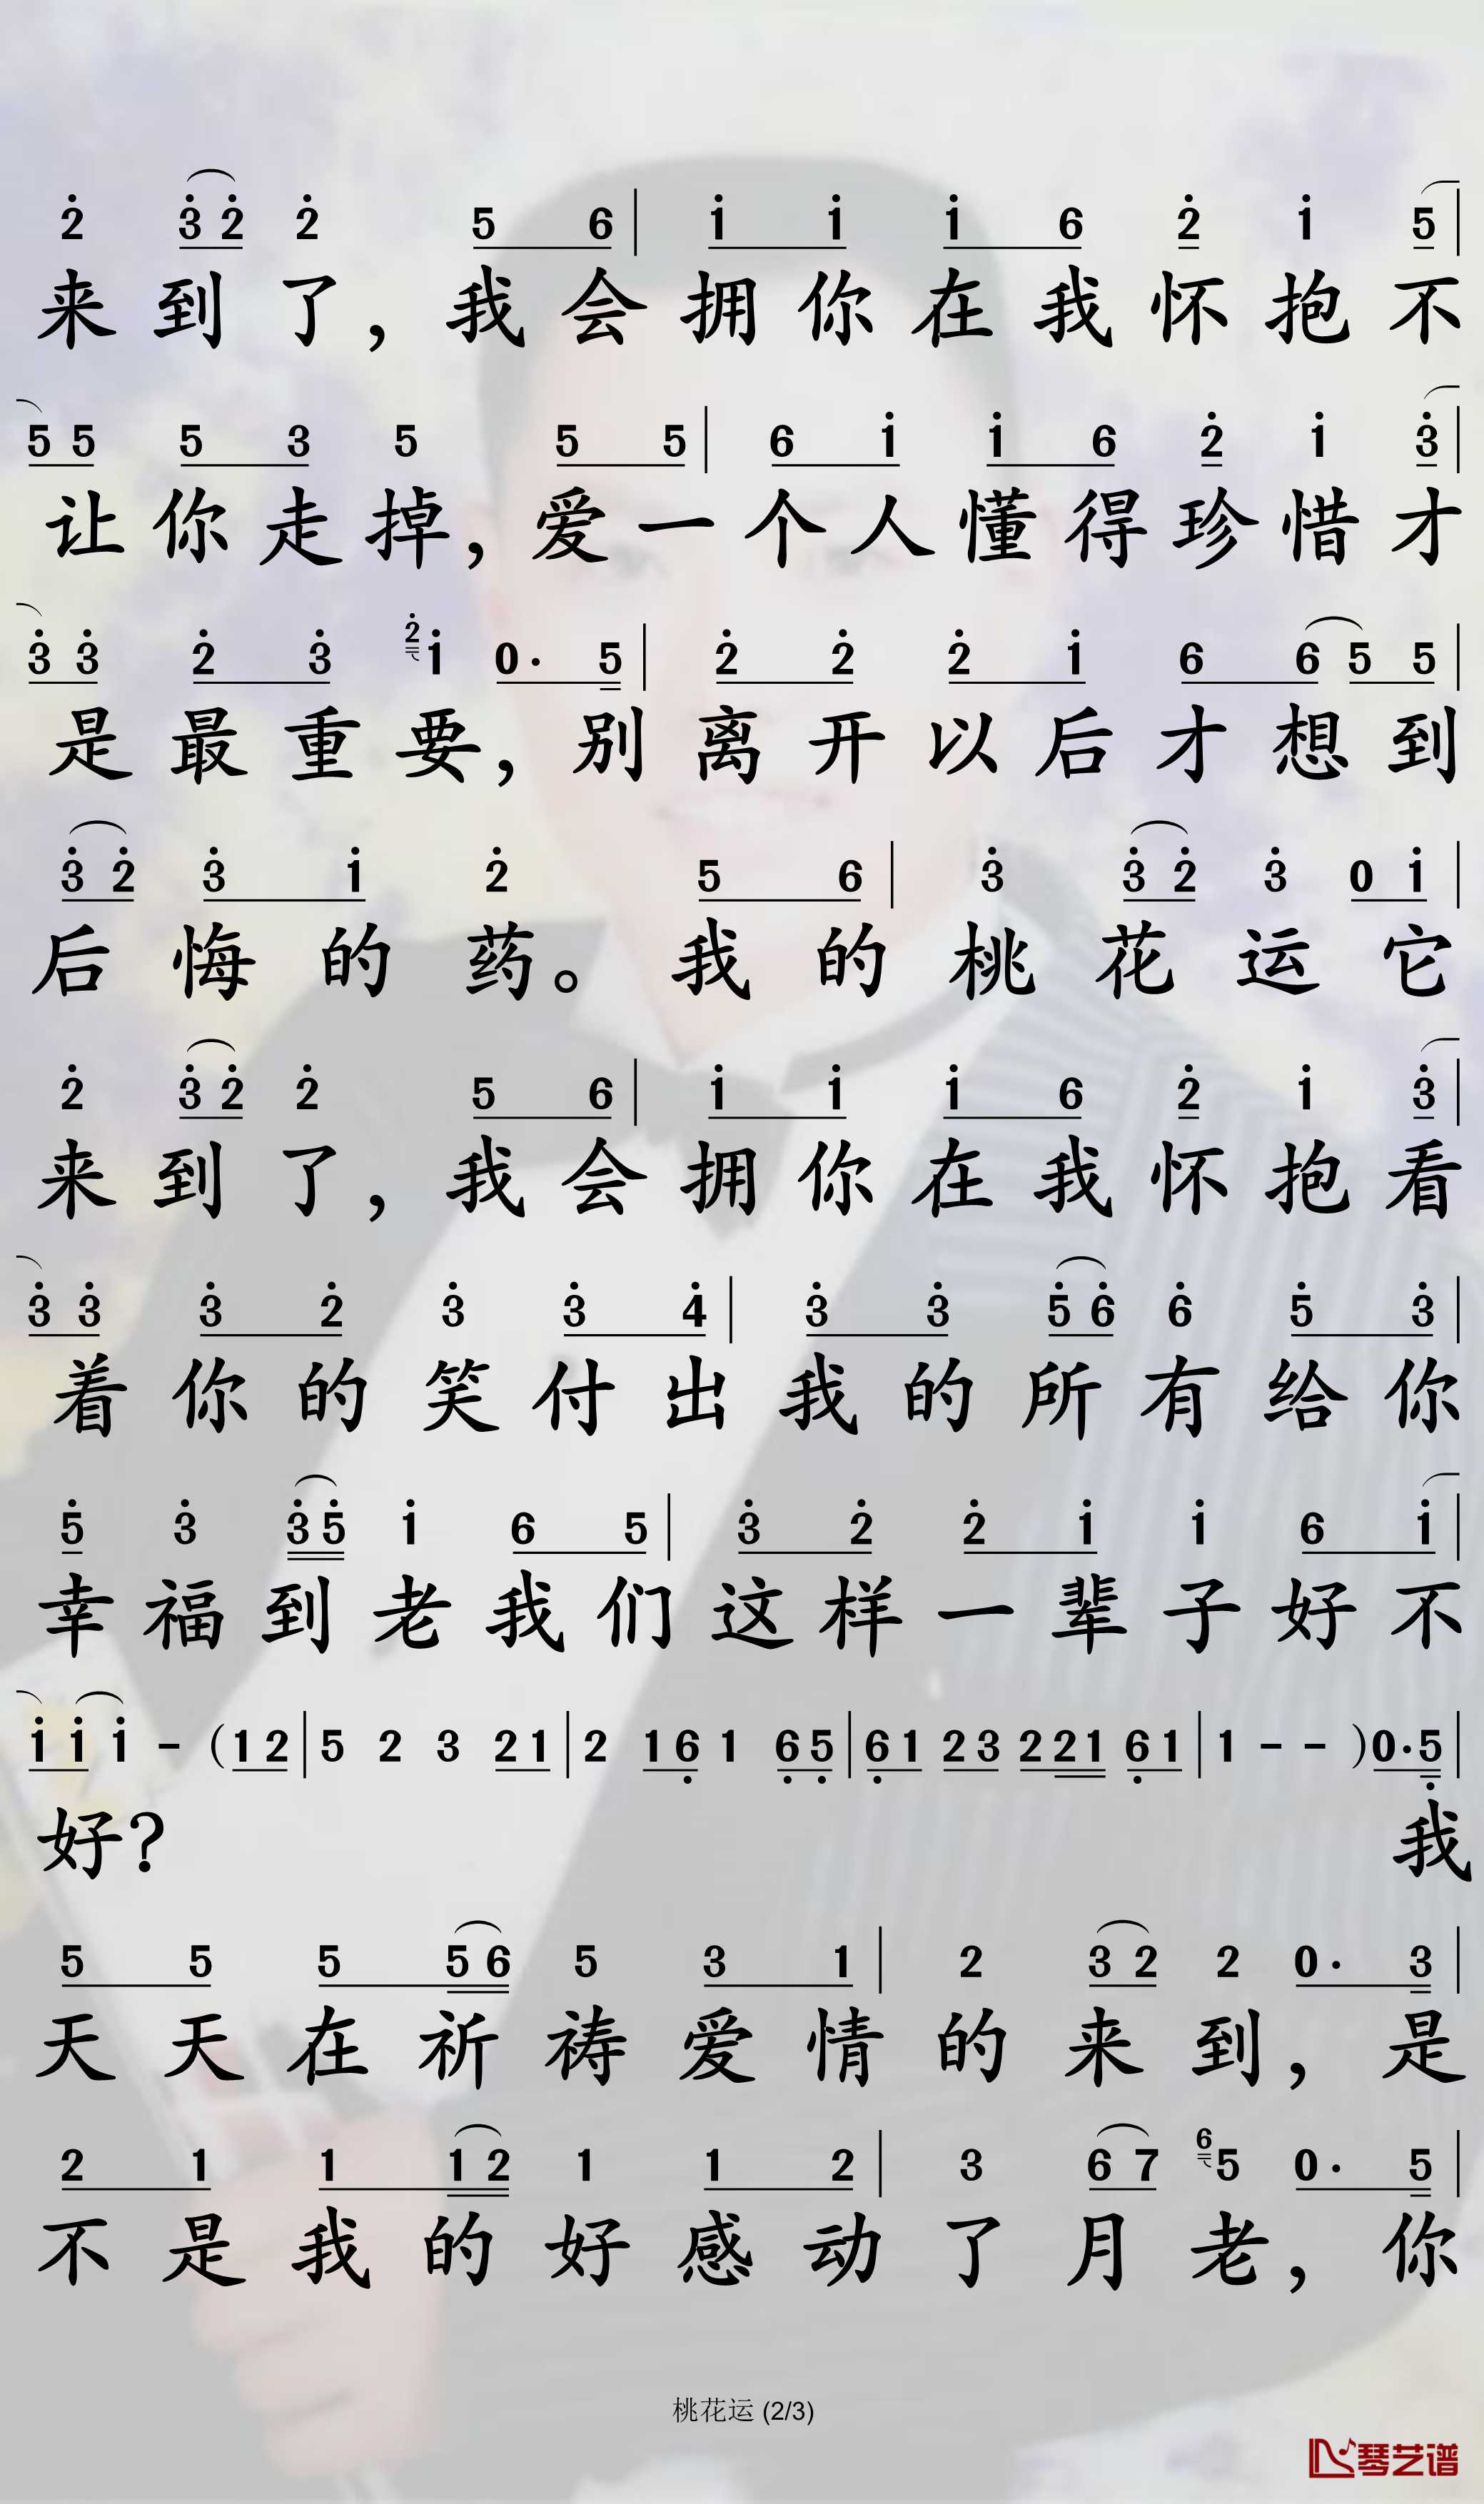 2̇ 3̇ 2̇ 2̇ 5 6 | 1̇ 1̇ 1̇ 6 2̇ 1̇ 5 |
来到了，我会拥你在我怀抱不
5 5 5 3 5 5 5 | 6 1̇ 1̇ 6 2̇ 1̇ 3̇ |
让你走掉，爱一个人懂得珍惜才
3̇ 3̇ 2̇ 3̇ 2̇ 1̇ 0· 5 | 2̇ 2̇ 2̇ 1̇ 6 6 5 5 |
是最重要，别离开以后才想到
3̇ 2̇ 3̇ 1̇ 2̇ 5 6 | 3̇ 3̇ 2̇ 3̇ 0 1̇ |
后悔的药。我的桃花运它
2̇ 3̇ 2̇ 2̇ 5 6 | 1̇ 1̇ 1̇ 6 2̇ 1̇ 3̇ |
来到了，我会拥你在我怀抱看
3̇ 3̇ 3̇ 2̇ 3̇ 3̇ 4̇ | 3̇ 3̇ 5̇ 6̇ 6̇ 5̇ 3̇ |
着你的笑付出我的所有给你
5̇ 3̇ 3̇ 5̇ 1̇ 6 5 | 3̇ 2̇ 2̇ 1̇ 1̇ 6 1̇ |
幸福到老我们这样一辈子好不
1̇ 1̇ 1̇ - (1 2 | 5 2 3 2 1 | 2 1 6̣ 1 6̣ 5̣ | 6̣ 1 2 3 2 2 1 6̣ 1 | 1 - - ) 0· 5̣ |
好？我
5 5 5 5 6 5 3 1 | 2 3 2 2 0· 3 |
天天在祈祷爱情的来到，是
2 1 1 1 2 1 1 2 | 3 6 7 6 5 0· 5 |
不是我的好感动了月老，你
桃花运 (2/3)
琴艺谱